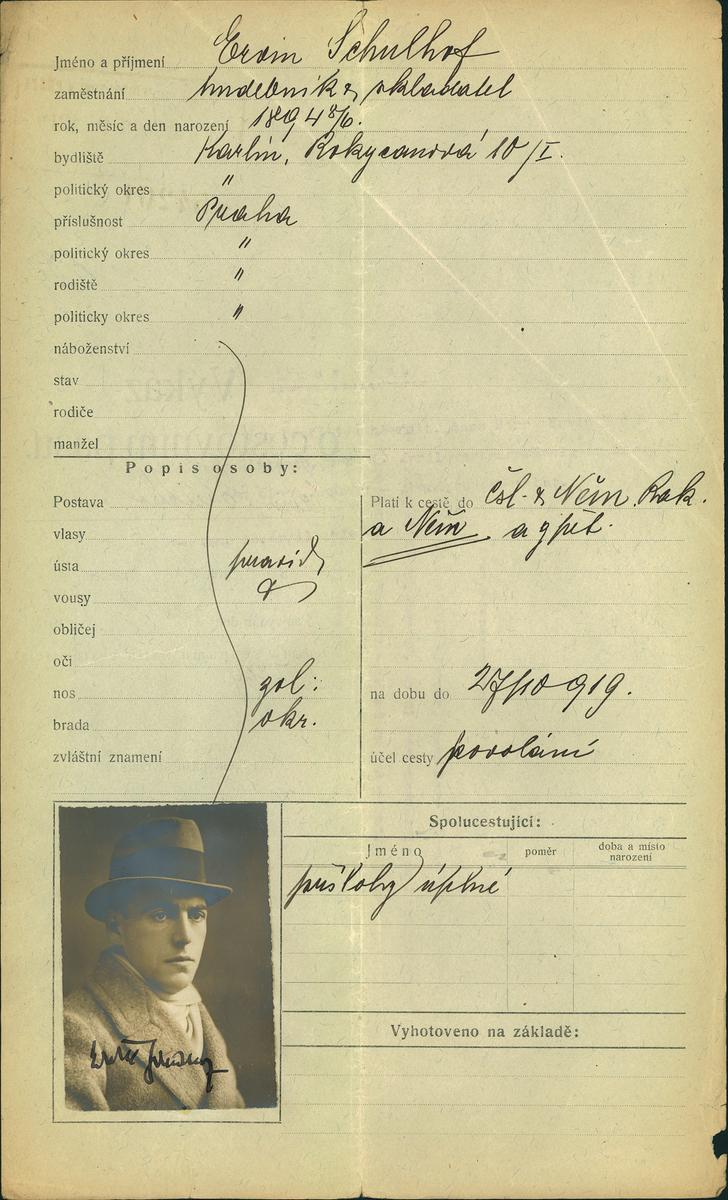 Jméno a příjmení Ervin Schulhof
zaměstnání hudebník & skladatel
rok, měsíc a den narození 1894 8/6.
bydliště Karlín, Rokycanová 10/I.
politický okres "
příslušnost Praha
politický okres "
rodiště "
politicky okres "
náboženství
stav
rodiče
manžel
Popis osoby:
Postava
vlasy
ústa pravid.
vousy
obličej
oči
nos
brada
zvláštní znamení
Platí k cestě do čsl. & Něm. Rak.
a Něm. a zpět.
na dobu do 27/10 919.
účel cesty povolání
Spolucestující:
Jméno
poměr
doba a místo narození
přílohy úplné
Vyhotoveno na základě: